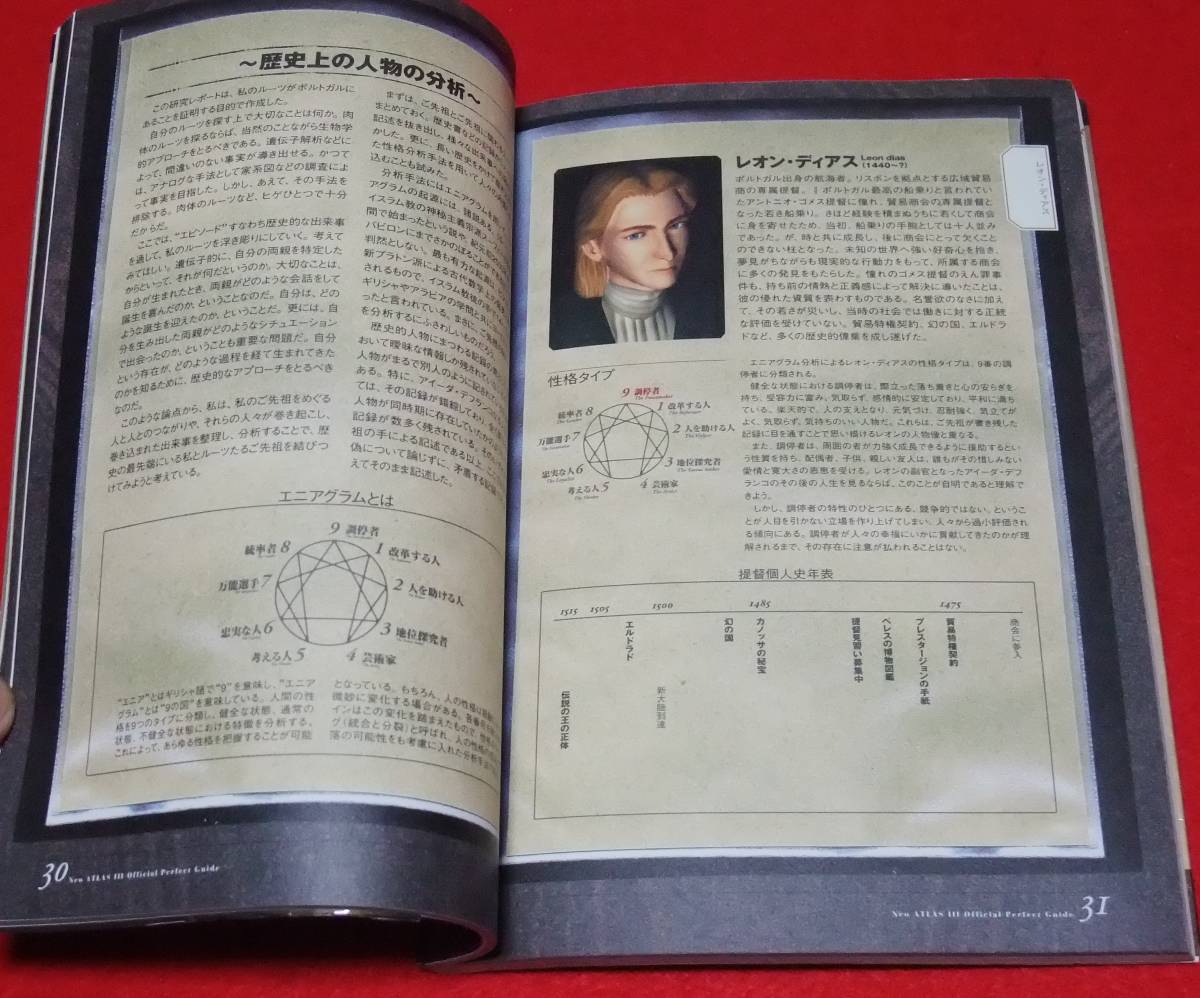 ～歴史上の人物の分析～
この研究レポートは、私のルーツがポルトガルに
あることを証明する目的で作成した。
自分のルーツを探す上で大切なことは何か。肉
体のルーツを探るならば、当然のことながら生物学
的アプローチをとるべきである。遺伝子解析などに
よって、間違いのない事実が導き出せる。かつて
は、アナログな手法として家系図などの調査によ
って事実を目指した。しかし、あえて、その手法を
排除する。肉体のルーツなど、ヒゲひとつで十分
だからだ。
ここでは、“エピソード”すなわち歴史的な出来事
を通して、私のルーツを浮き彫りにしていく。考えて
みてほしい。遺伝子的に、自分の両親を特定した
からといって、それが何だというのか。大切なことは、
自分が生まれたとき、両親がどのような会話をして
誕生を喜んだのか、ということなのだ。自分は、どの
ような誕生を迎えたのか、ということだ。更には、自
分を生み出した両親がどのようなシチュエーション
で出会ったのか、ということも重要な問題だ。自分
という存在が、どのような過程を経て生まれてきた
のかを知るために、歴史的なアプローチをとるべき
なのだ。
このような論点から、私は、私のご先祖をめぐる
人と人とのつながりや、それらの人々が巻き起こし、
巻き込まれた出来事を整理し、分析することで、歴
史の最先端にいる私とルーツたるご先祖を結びつ
けてみようと考えている。
まずは、ご先祖とご先祖に関わ
まとめておく。歴史書などの記録か
記述を抜き出し、様々な出来事
かした。更に、長い歴史をかけて
た性格分析手法を用いて人々の
込むことも試みた。
分析手法にはエニアグラムを用
アグラムの起源には、諸説ある。
イスラム教の神秘主義宗派
間で始まったという説や、紀元
バビロンにまでさかのぼることが
判然としない。最も有力な
新プラトン派による古代数学
されるもので、イスラム教徒の
ギリシャやアラビアの学問と共に
ったと言われている。まさに、ご先祖
を分析するにふさわしいものだろう。
歴史的人物にまつわる記録の
おいて曖昧な情報しか残されてい
人物がまるで別人のように記され
ある。特に、アイーダ・デフラン
ては、その記録が錯綜しており、全
人物が同時期に存在していたかの
記録が数多く残されている。
祖の手による記述である以上
偽について論じずに、矛盾する記録
えてそのまま記述した。
エニアグラムとは
9 調停者
1 改革する人
2 人を助ける人
3 地位探究者
4 芸術家
考える人 5
忠実な人 6
万能選手 7
統率者 8
“エニア”とはギリシャ語で“9”を意味し、“エニア
グラム”とは“9の図”を意味している。人間の性
格を9つのタイプに分類し、健全な状態、通常の
状態、不健全な状態における特徴を分析する。
これによって、あらゆる性格を把握することが可能
となっている。もちろん、人の性格は
微妙に変化する場合がある。各番号の
インはこの変化を踏まえたもので、
グ(統合と分裂)と呼ばれ、人の性格の
落の可能性をも考慮に入れた分析手法
30 Neo ATLAS III Official Perfect Guide
レオン・ディアス Leon dias
(1440～?)
ポルトガル出身の航海者。リスボンを拠点とする広域貿易
商の専属提督。ポルトガル最高の船乗りと言われてい
たアントニオ・ゴメス提督に憧れ、商会の専属提督と
なった若き船乗り。さほど経験を積まぬうちに若くして商会
に身を寄せたため、当初、船乗りの手腕としては十人並み
であった。が、時と共に成長し、後に商会にとって欠くこと
のできない柱となった。未知の世界へ強い好奇心を抱き、
夢見がちながらも現実的な行動力をもって、所属する商会
に多くの発見をもたらした。憧れのゴメス提督のえん罪事
件も、持ち前の情熱と正義感によって解決に導いたことは、
彼の優れた資質を表わすものである。名誉欲のなさに加え
て、その若さが災いし、当時の社会では働きに対する正統
な評価を受けていない。貿易特権契約、幻の国、エルドラ
ドなど、多くの歴史的偉業を成し遂げた。
レオン・ディアス
エニアグラム分析によるレオン・ディアスの性格タイプは、9番の調
停者に分類される。
健全な状態における調停者は、際立った落ち着きと心の安らぎを
持ち、受容力に富み、気取らず、感情的に安定しており、平和に満ち
ている。楽天的で、人の支えとなり、元気づけ、忍耐強く、気立てが
よく、気取らず、気持ちのいい人物だ。これらは、ご先祖が書き残した
記録に目を通すことで思い描けるレオンの人物像と重なる。
また、調停者は、周囲の者が力強く成長できるように援助するとい
う性質を持ち、配偶者、子供、親しい友人は、誰もがその惜しみない
愛情と寛大さの恩恵を受ける。レオンの副官となったアイーダ・デフ
ランコのその後の人生を見るならば、このことが自明であると理解で
きよう。
しかし、調停者の特性のひとつにある、競争的ではない。というこ
とが人目を引かない立場を作り上げてしまい、人々から過小評価され
る傾向にある。調停者が人々の幸福にいかに貢献してきたのかが理
解されるまで、その存在に注意が払われることはない。
性格タイプ
9 調停者
The Peacemaker
1 改革する人
The Reformer
2 人を助ける人
The Helper
3 地位探究者
4 芸術家
The Artist
考える人 5
The Thinker
忠実な人 6
The Loyalist
万能選手 7
統率者 8
The Leader
提督個人史年表
1515 1505 1500 1485 1475
商会に参入
貿易特権契約
プレスタージョンの手紙
ペレスの博物図鑑
提督見習い募集中
カノッサの秘宝
幻の国
新大陸到達
エルドラド
伝説の王の正体
Neo ATLAS III Official Perfect Guide 31